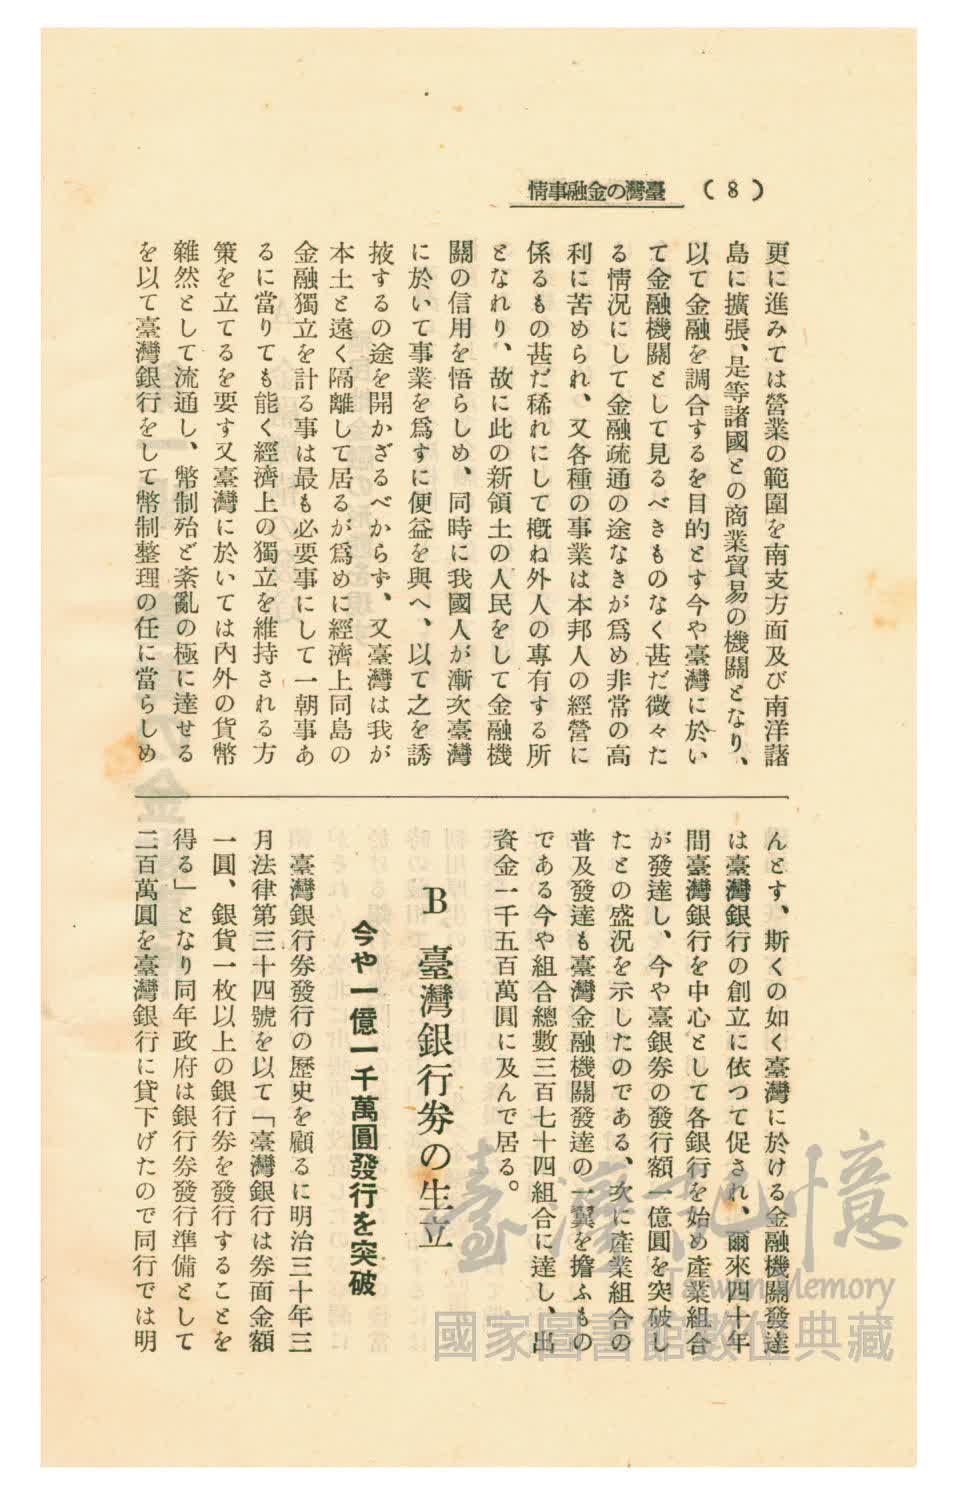 (8)
臺灣の金融事情
更に進みては營業の範圍を南支方面及び南洋諸
島に擴張、是等諸國との商業貿易の機關となり、
以て金融を調合するを目的とす今や臺灣に於い
て金融機關として見るべきものなく甚だ微々た
る情況にして金融疏通の途なきが爲め非常の高
利に苦められ、又各種の事業は本邦人の經營に
係るもの甚だ稀れにして槪ね外人の專有する所
となれり、故に此の新領土の人民をして金融機
關の信用を悟らしめ、同時に我國人が漸次臺灣
に於いて事業を爲すに便益を與へ、以て之を誘
掖するの途を開かざるべからず、又臺灣は我が
本土と遠く隔離して居るが爲めに經濟上同島の
金融獨立を計る事は最も必要事にして一朝事あ
るに當りても能く經濟上の獨立を維持される方
策を立てるを要す又臺灣に於いては內外の貨幣
雜然として流通し、幣制殆ど紊亂の極に達せる
を以て臺灣銀行をして幣制整理の任に當らしめ
んとす、斯くの如く臺灣に於ける金融機關發達
は臺灣銀行の創立に依つて促され、爾來四十年
間臺灣銀行を中心として各銀行を始め產業組合
が發達し、今や臺銀券の發行額一億圓を突破し
たとの盛況を示したのである、次に產業組合の
普及發達も臺灣金融機關發達の一翼を擔ふもの
である今や組合總數三百七十四組合に達し、出
資金一千五百萬圓に及んで居る。
B 臺灣銀行券の生立
今や一億一千萬圓發行を突破
臺灣銀行券發行の歷史を顧るに明治三十年三
月法律第三十四號を以て「臺灣銀行は券面金額
一圓、銀貨一枚以上の銀行券を發行することを
得る」となり同年政府は銀行券發行準備として
二百萬圓を臺灣銀行に貸下げたので同行では明
臺灣記憶
Taiwan Memory
國家圖書館數位典藏